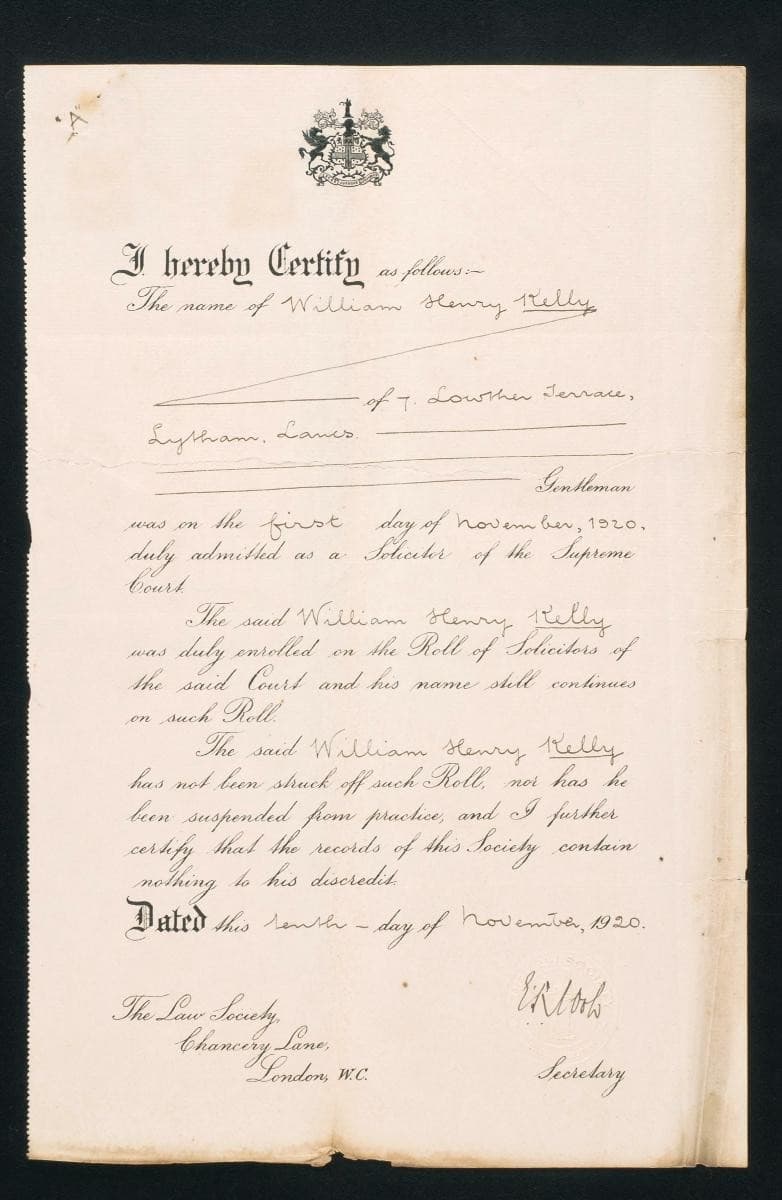 "A"
I hereby Certify as follows:—
The name of William Henry Kelly
of 7. Lowther Terrace,
Lytham, Lancs.
Gentleman
was on the first day of November, 1920.
duly admitted as a Solicitor of the Supreme
Court.
The said William Henry Kelly
was duly enrolled on the Roll of Solicitors of
the said Court and his name still continues
on such Roll.
The said William Henry Kelly
has not been struck off such Roll, nor has he
been suspended from practice, and I further
certify that the records of this Society contain
nothing to his discredit.
Dated this tenth – day of November, 1920.
The Law Society,
Chancery Lane,
London, W.C.
Secretary